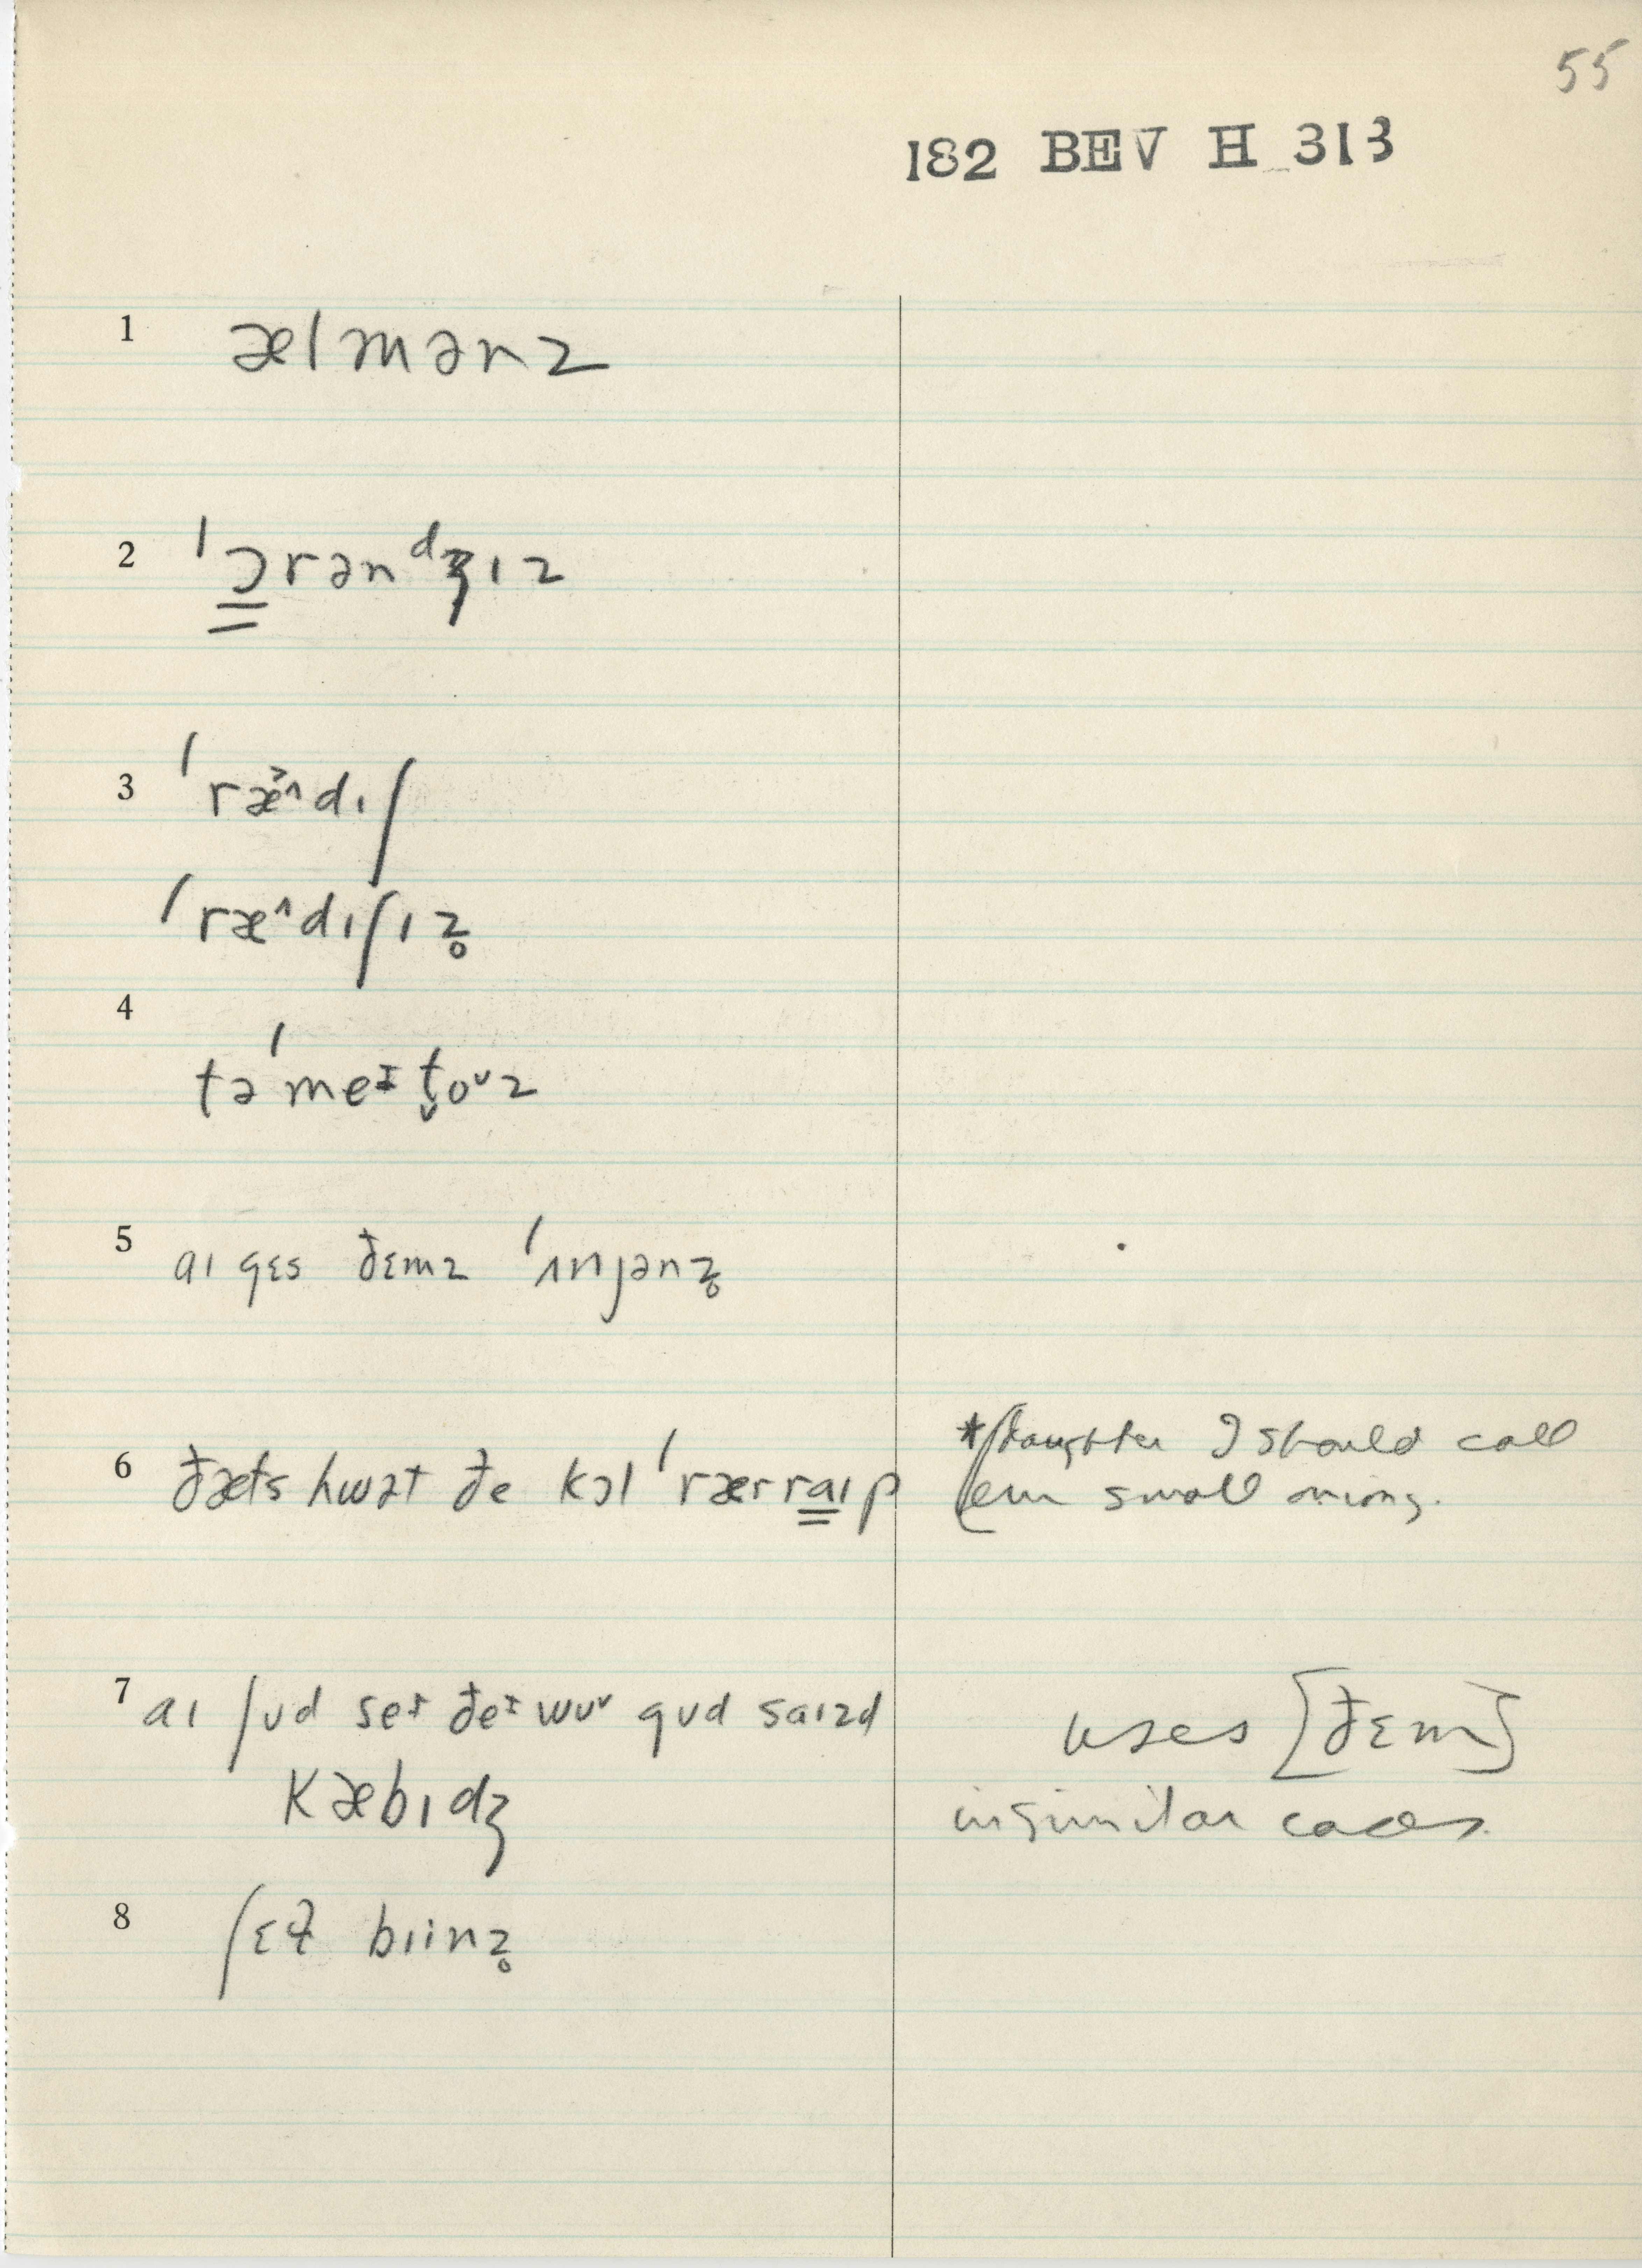 55
182 BEV H 313
1 ælmənz
2 ˈɔ̳rənᵈʒɪz
3 ˈræ˃˄dɪʃ
ˈræ˄dɪʃɪz̥
4 təˈmeɪt̬oᴜz
5 aɪ gɛs ðɛmz ˈɪnjənz̥
6 ðæts hwət ðe kɔl ˈrærra̳ɪp *[daughter I should call
em small onions.
7 aɪ ʃʊd seɪ ðeɪ wʊᵛ gʊd saɪzd uses [ðɛm]
kæbɪdʒ in similar cases.
8 ʃɛɫ bɪinz̥